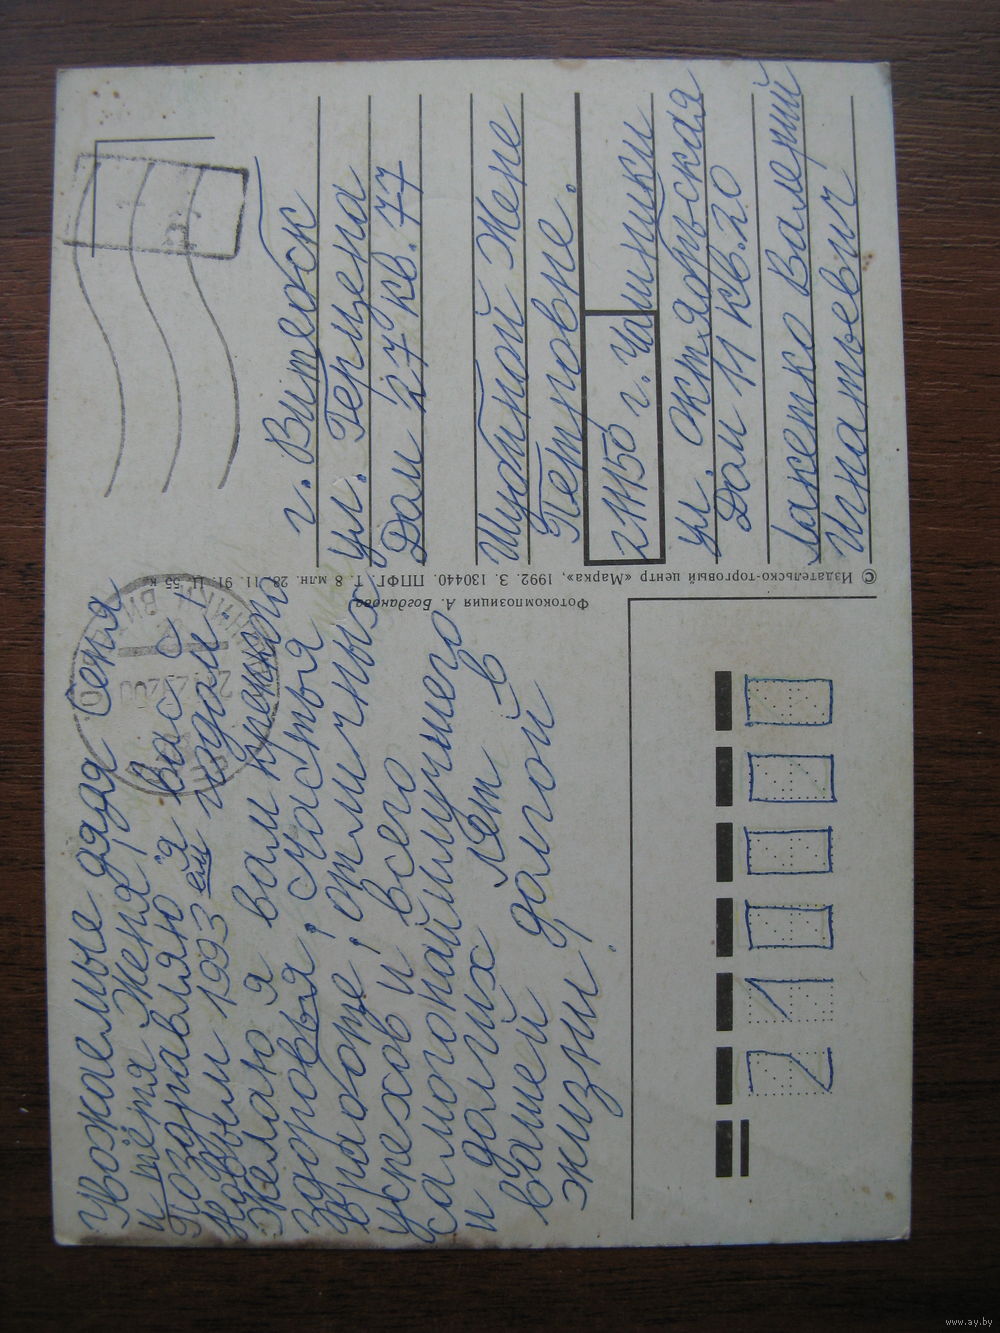 Увожаемые дядя Сеня
и тётя Женя!
Поздравляю я вас с
новым 1993 ем годом!
желаю я вам крепкого
здоровья, счастья
вработе, отличных
успехов и всего
самогонаилучшего
и долгих лет в
вашей далгой
жизни!
г. Витебск
ул. Герцена
Дом 27 кв. 77
Шубиной Жене
Петровне.
211150 г. Чашники
ул. Октябрьская
Дом 11 кв. 20
Лакетко Валерий
Игнатьевич
Фотокомпозиция А. Богданова
© Издательско-торговый центр «Марка», 1992. З. 130440. ППФГ. Т. 8 млн. 28. 11. 91. Ц. 55 к.
210000
www.ay.by